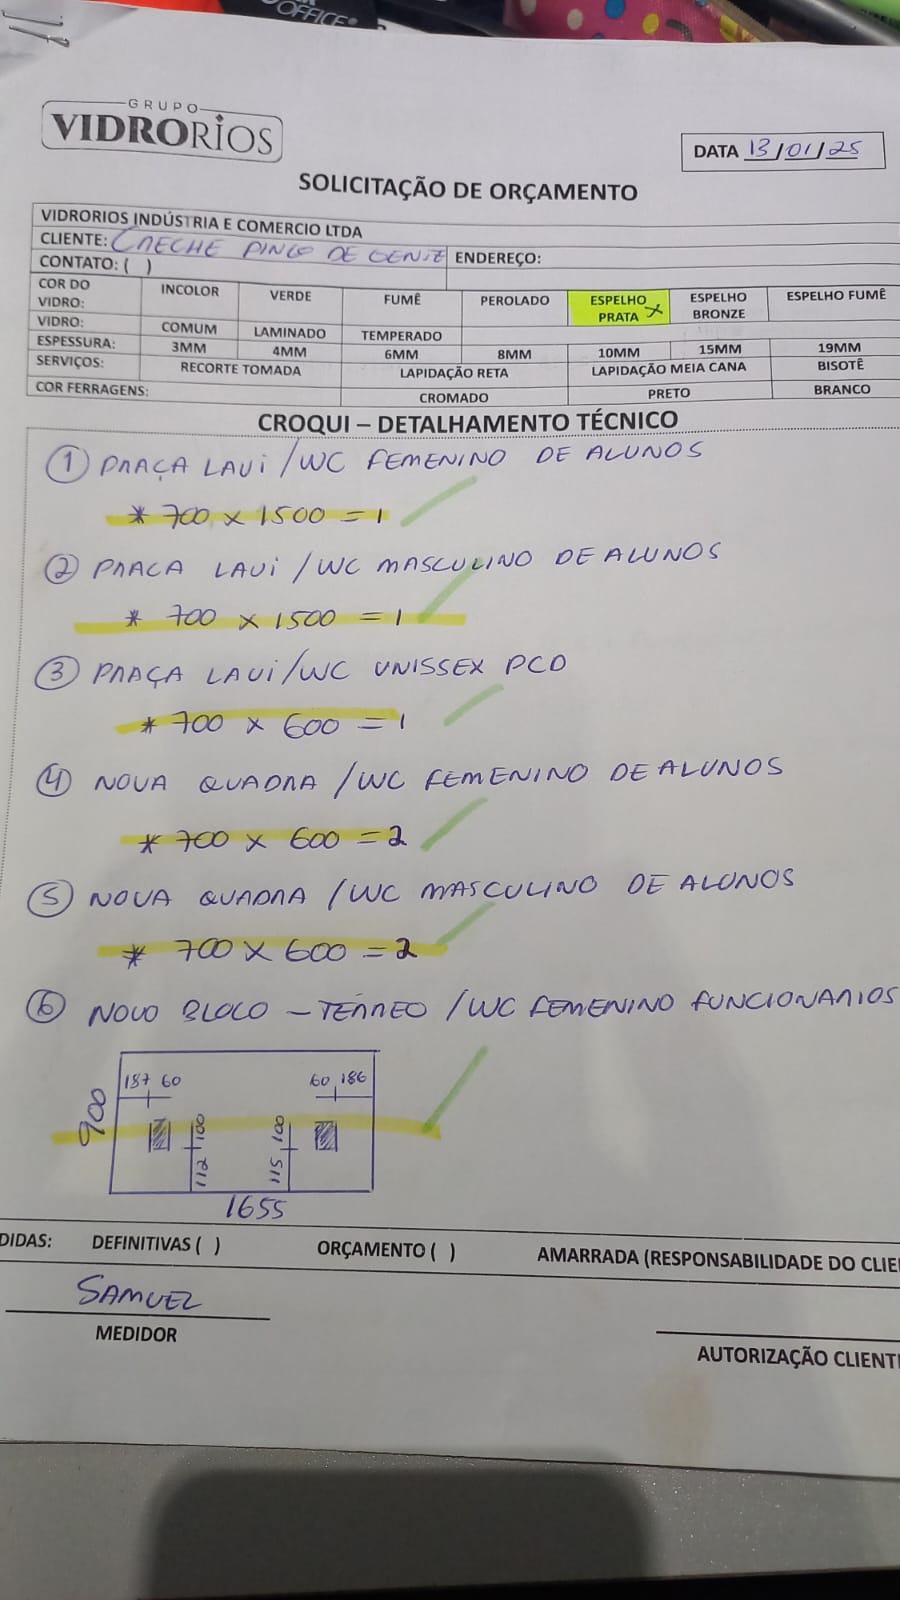 OFFICE®
GRUPO
VIDRORIOS
DATA 13/01/25
SOLICITAÇÃO DE ORÇAMENTO
VIDRORIOS INDÚSTRIA E COMERCIO LTDA
CLIENTE: CRECHE PINGO DE GENTE ENDEREÇO:
CONTATO: ( )
COR DO VIDRO: INCOLOR VERDE FUMÊ PEROLADO ESPELHO PRATA X ESPELHO BRONZE ESPELHO FUMÊ
VIDRO: COMUM LAMINADO TEMPERADO
ESPESSURA: 3MM 4MM 6MM 8MM 10MM 15MM 19MM
SERVIÇOS: RECORTE TOMADA LAPIDAÇÃO RETA LAPIDAÇÃO MEIA CANA BISOTÊ
COR FERRAGENS: CROMADO PRETO BRANCO
CROQUI – DETALHAMENTO TÉCNICO
1 PRAÇA LAVI/WC FEMENINO DE ALUNOS
* 700 x 1500 = 1
2 PRACA LAVI/WC MASCULINO DE ALUNOS
* 700 x 1500 = 1
3 PRAÇA LAVI/WC UNISSEX PCD
* 700 x 600 = 1
4 NOVA QUADRA/WC FEMENINO DE ALUNOS
* 700 x 600 = 2
5 NOVA QUADRA/WC MASCULINO DE ALUNOS
* 700 x 600 = 2
6 NOVO BLOCO - TÉRREO/WC FEMENINO FUNCIONARIOS
187 60 60 186
900
100 100
112 115
1655
DIDAS: DEFINITIVAS ( ) ORÇAMENTO ( ) AMARRADA (RESPONSABILIDADE DO CLIE
SAMUEL
MEDIDOR
AUTORIZAÇÃO CLIENT